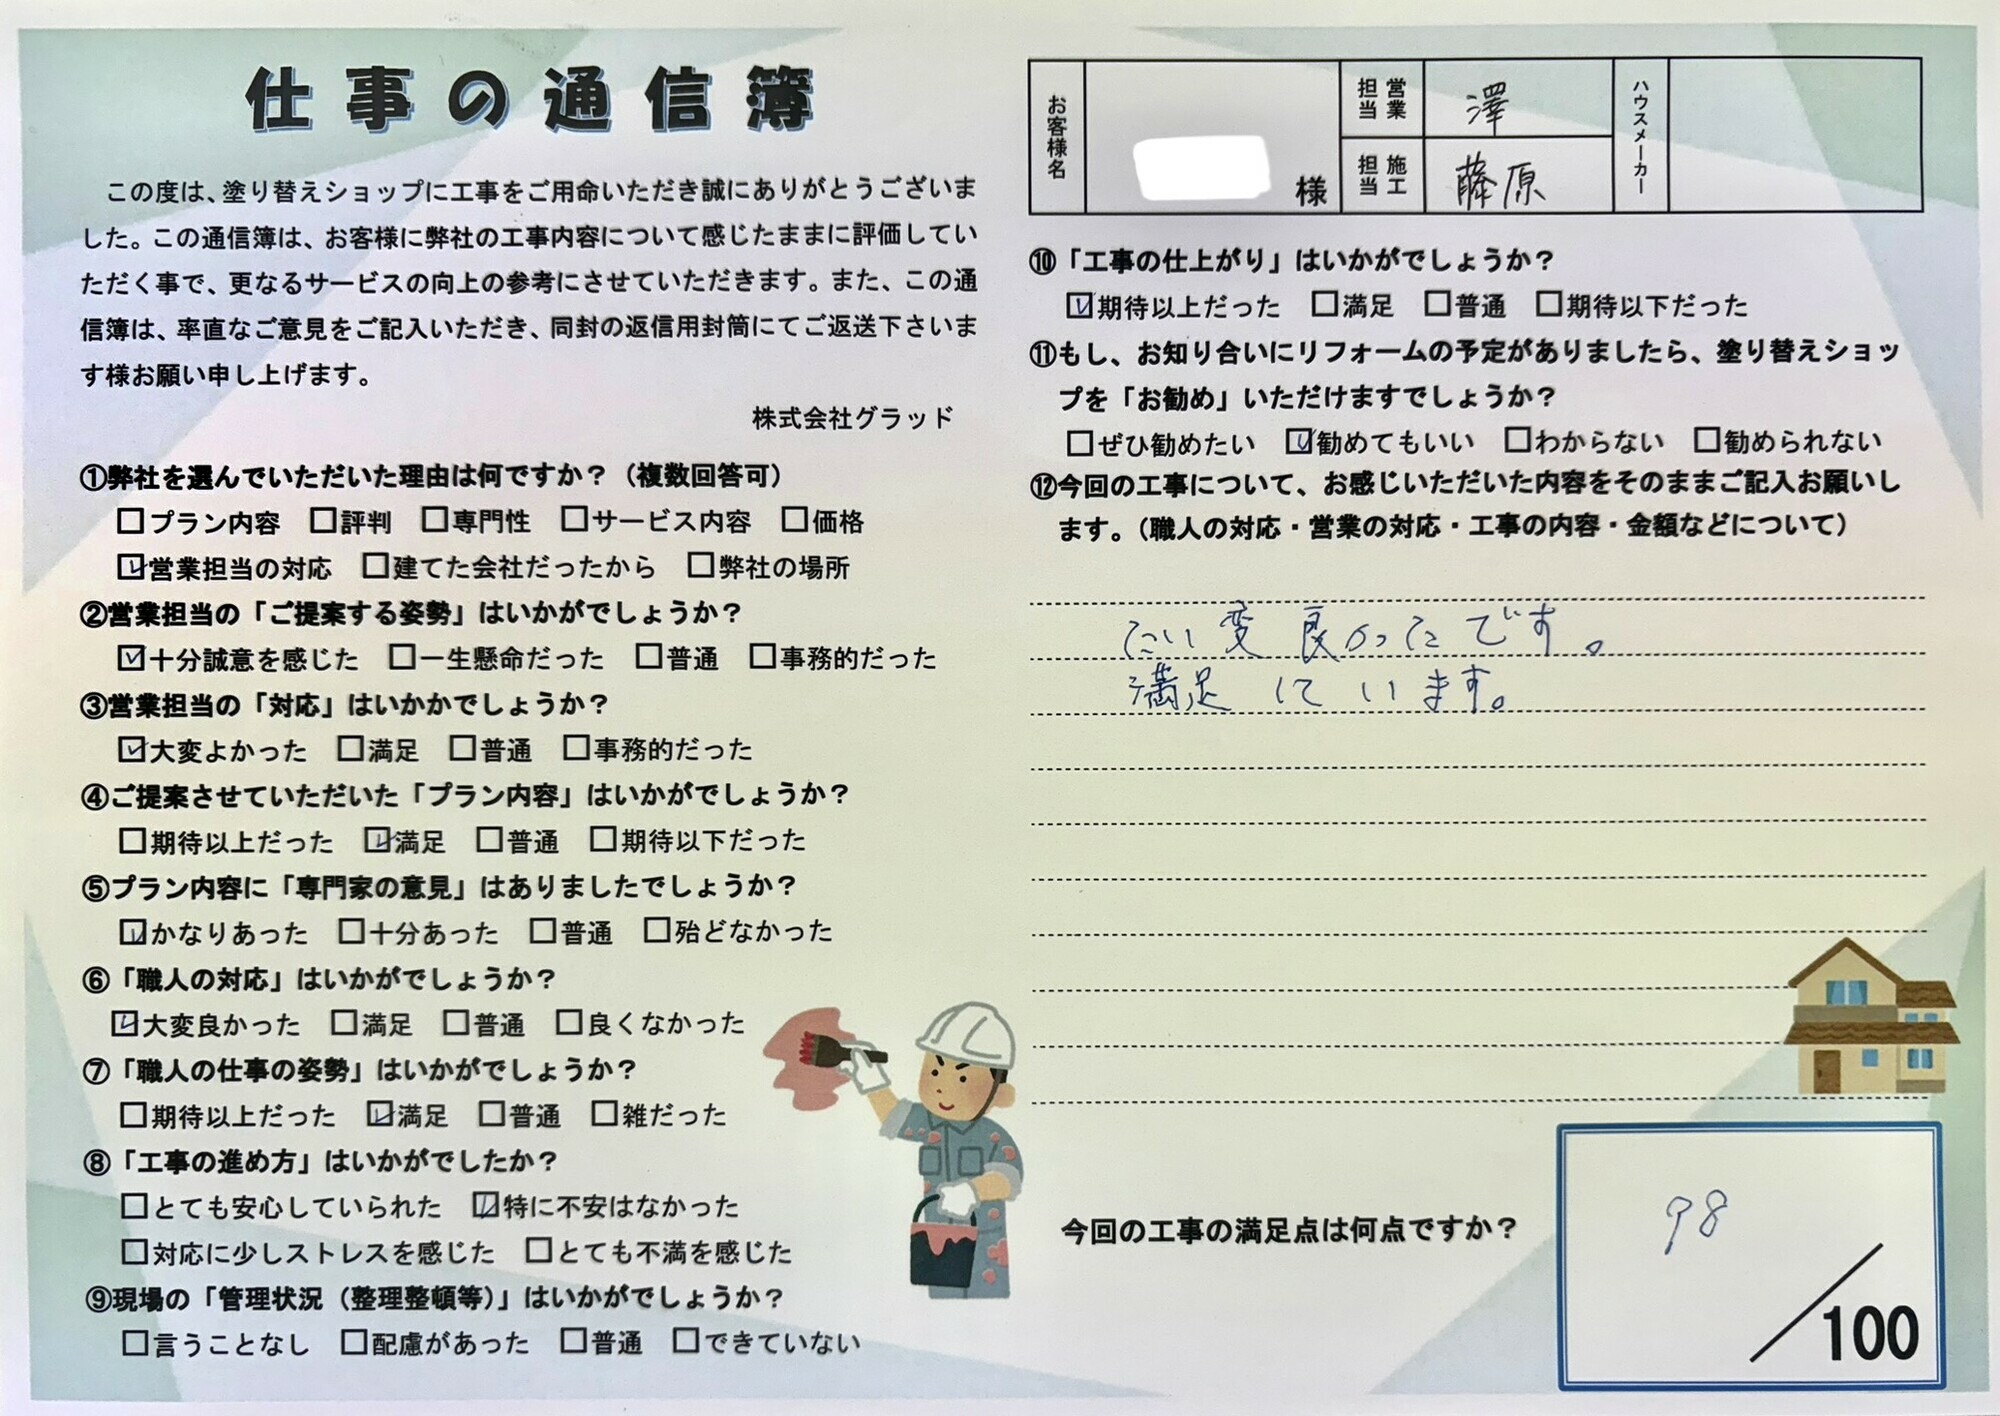 仕事の通信簿
この度は、塗り替えショップに工事をご用命いただき誠にありがとうございま
した。この通信簿は、お客様に弊社の工事内容について感じたままに評価してい
ただく事で、更なるサービスの向上の参考にさせていただきます。また、この通
信簿は、率直なご意見をご記入いただき、同封の返信用封筒にてご返送下さいま
す様お願い申し上げます。
株式会社グラッド
①弊社を選んでいただいた理由は何ですか？（複数回答可）
□プラン内容 □評判 □専門性 □サービス内容 □価格
☑営業担当の対応 □建てた会社だったから □弊社の場所
②営業担当の「ご提案する姿勢」はいかがでしょうか？
☑十分誠意を感じた □一生懸命だった □普通 □事務的だった
③営業担当の「対応」はいかかでしょうか？
☑大変よかった □満足 □普通 □事務的だった
④ご提案させていただいた「プラン内容」はいかがでしょうか？
□期待以上だった ☑満足 □普通 □期待以下だった
⑤プラン内容に「専門家の意見」はありましたでしょうか？
☑かなりあった □十分あった □普通 □殆どなかった
⑥「職人の対応」はいかがでしょうか？
☑大変良かった □満足 □普通 □良くなかった
⑦「職人の仕事の姿勢」はいかがでしょうか？
□期待以上だった ☑満足 □普通 □雑だった
⑧「工事の進め方」はいかがでしたか？
□とても安心していられた ☑特に不安はなかった
□対応に少しストレスを感じた □とても不満を感じた
⑨現場の「管理状況（整理整頓等）」はいかがでしょうか？
□言うことなし □配慮があった □普通 □できていない
お客様名 様
営業担当 澤
施工担当 藤原
ハウスメーカー
⑩「工事の仕上がり」はいかがでしょうか？
☑期待以上だった □満足 □普通 □期待以下だった
⑪もし、お知り合いにリフォームの予定がありましたら、塗り替えショッ
プを「お勧め」いただけますでしょうか？
□ぜひ勧めたい ☑勧めてもいい □わからない □勧められない
⑫今回の工事について、お感じいただいた内容をそのままご記入お願いし
ます。（職人の対応・営業の対応・工事の内容・金額などについて）
たい変良かったです。
満足しています。
今回の工事の満足点は何点ですか？
98
/100